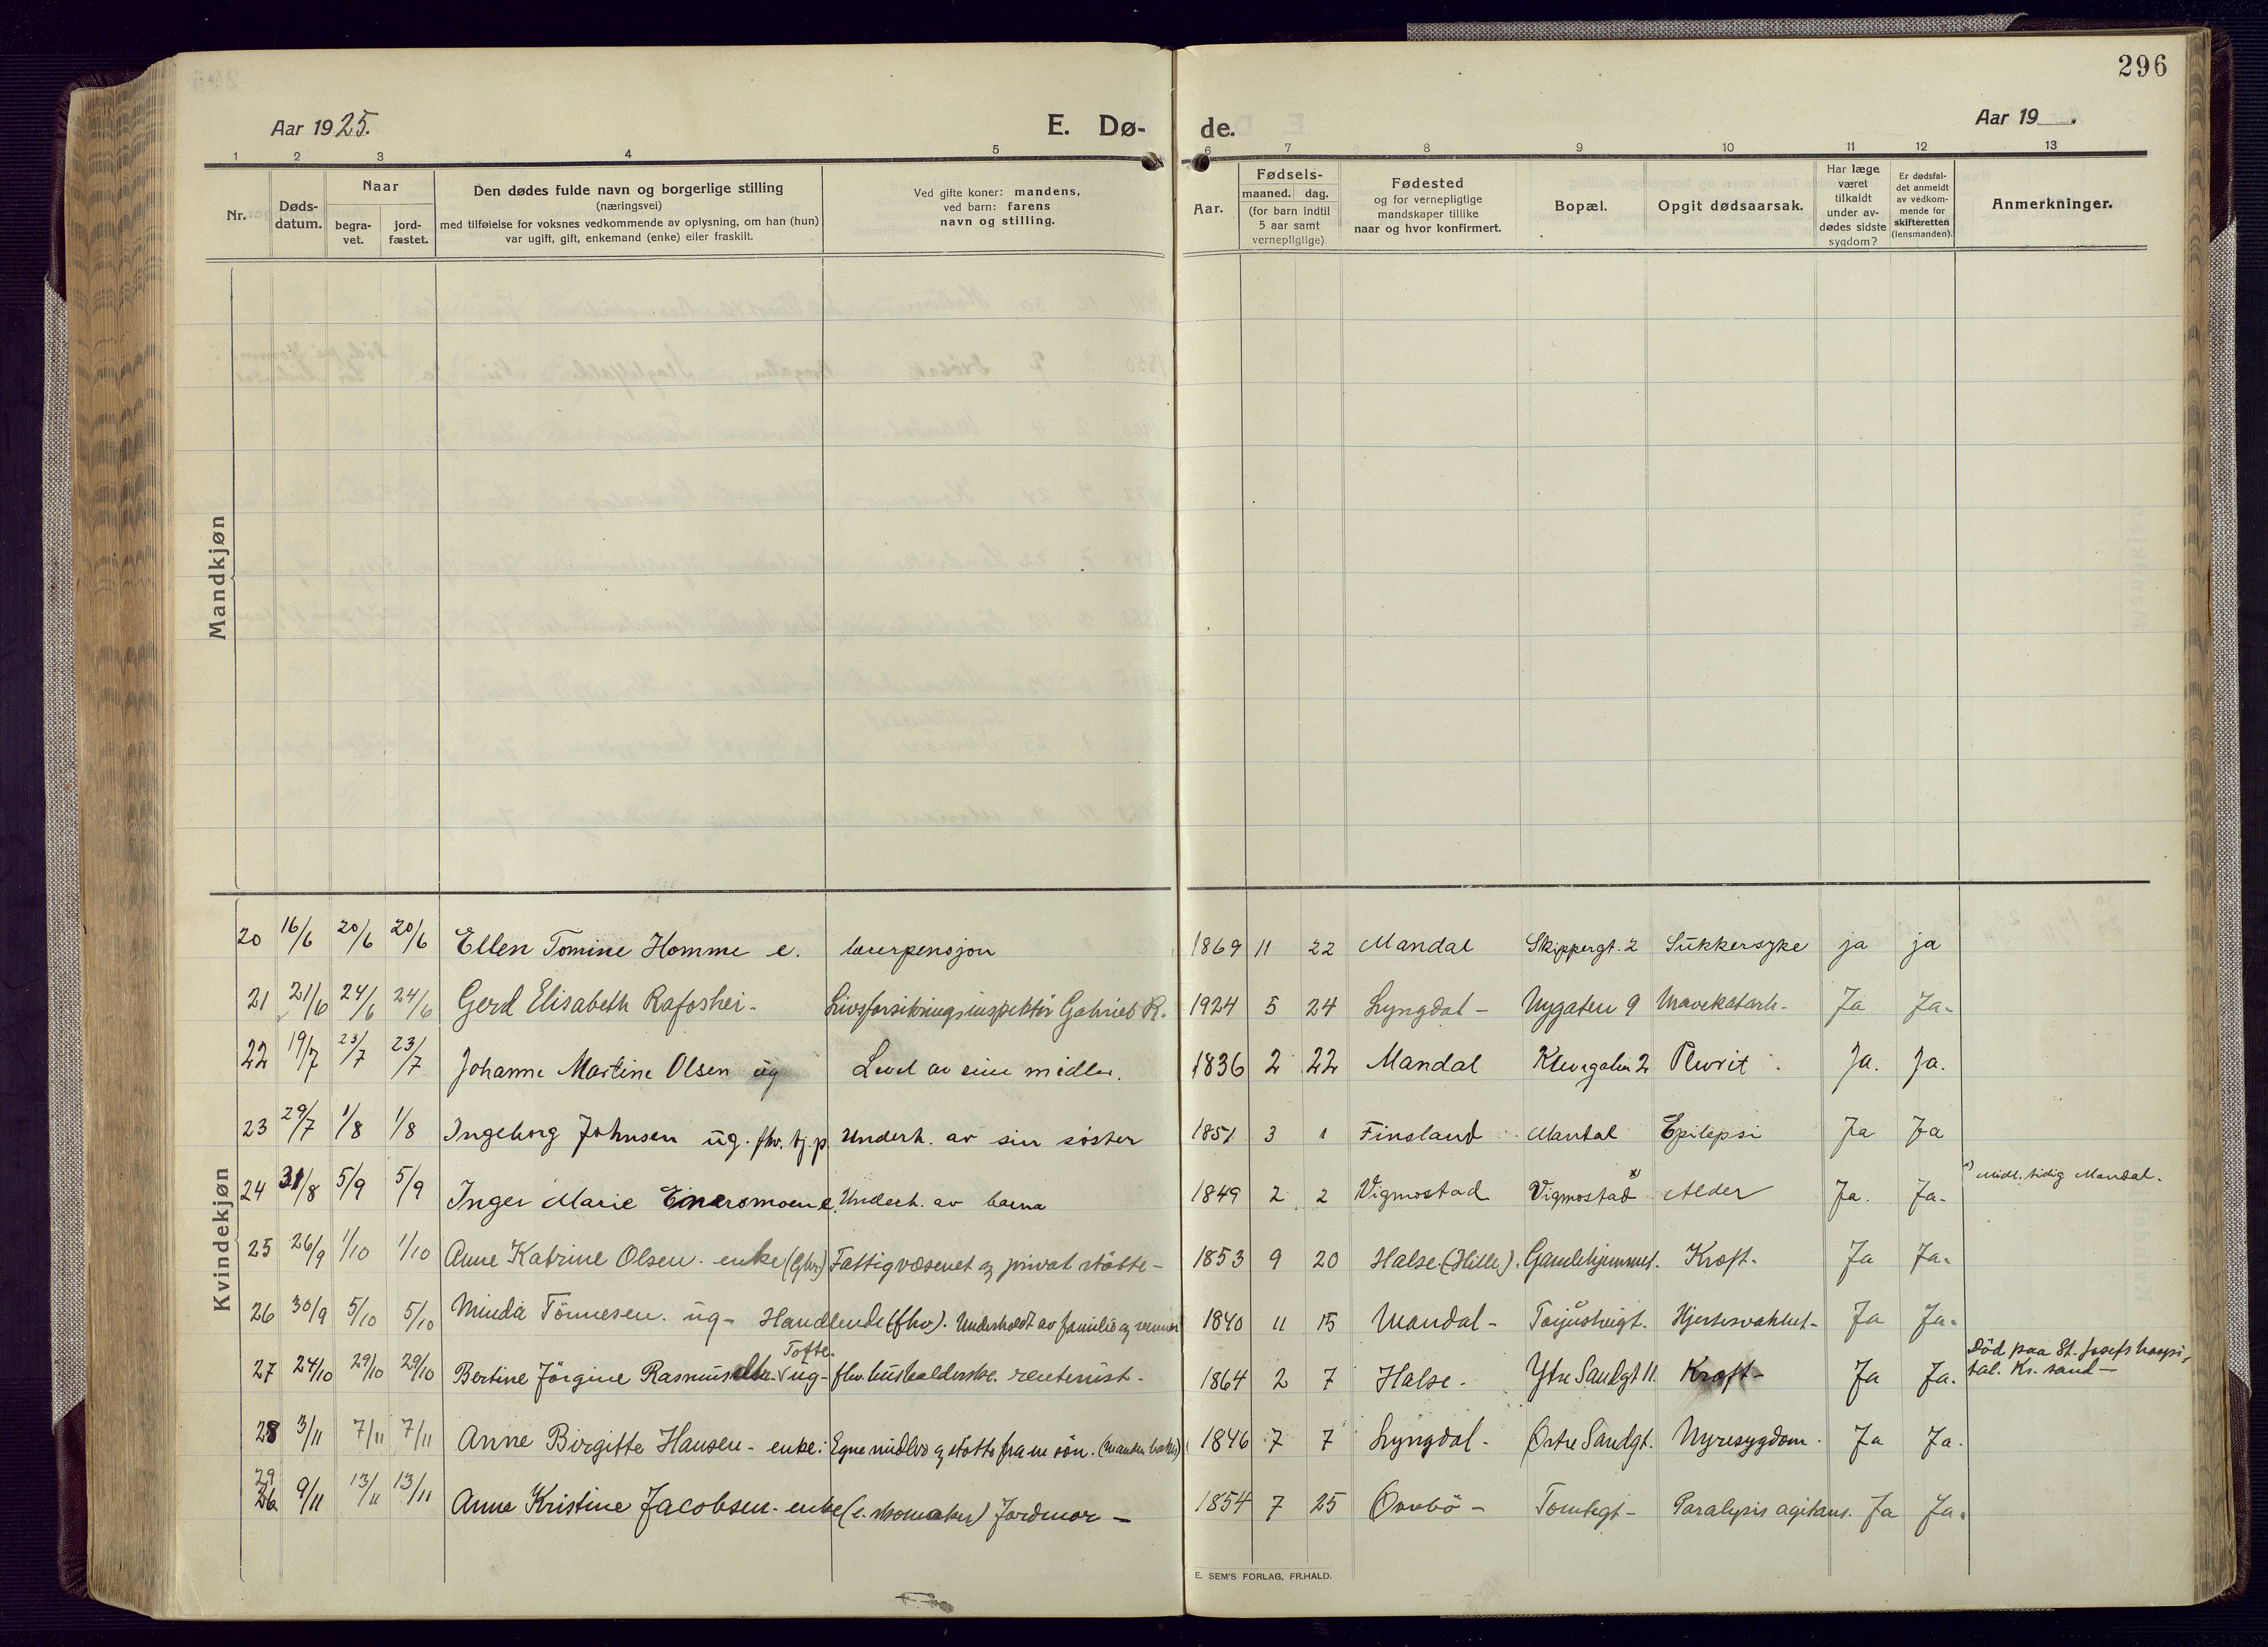 296
Aar 1925.
E. Dø-
de.
Aar 19 .
1 2 3 4 5 6 7 8 9 10 11 12 13
Nr.
Døds-
datum.
Naar
begra-
vet.
jord-
fæstet.
Den dødes fulde navn og borgerlige stilling
(næringsvei)
med tilføielse for voksnes vedkommende av oplysning, om han (hun)
var ugift, gift, enkemand (enke) eller fraskilt.
Ved gifte koner: mandens,
ved barn: farens
navn og stilling.
Aar.
Fødsels-
maaned. dag.
(for barn indtil
5 aar samt
vernepligtige)
Fødested
og for vernepligtige
mandskaper tillike
naar og hvor konfirmert.
Bopæl.
Opgit dødsaarsak.
Har læge
været
tilkaldt
under av-
dødes sidste
sygdom?
Er dødsfal-
det anmeldt
av vedkom-
mende for
skifteretten
(lensmanden).
Anmerkninger.
Mandkjøn
Kvindekjøn
20 16/6 20/6 20/6 Ellen Tomine Homme e. lærerpensjon 1869 11 22 Mandal Skippergt. 2 Sukkersyke ja ja
21 21/6 24/6 24/6 Gerd Elisabeth Rafoshei - Livsforsikringsinspektör Gabriel R. 1924 5 24 Lyngdal - Nygaten 9 Mavekatarh - Ja Ja -
22 19/7 23/7 23/7 Johanne Martine Olsen ug Levet av sine midler. 1836 2 22 Mandal 2 Plevrit Ja. Ja.
23 29/7 1/8 1/8 Ingeborg Johnsen ug. fhv. tj.p. Underh. av sin søster 1851 3 1 Finsland Mandal Epilepsi Ja Ja
24 31/8 5/9 5/9 Inger Marie e. Underh. av barna 1849 2 2 Vigmostad Vigmostad x) Alder Ja. Ja - x) Midl. tidig Mandal.
25 26/9 1/10 1/10 Anne Katrine Olsen. enke Fattigvæsenet og privat støtte - 1853 9 20 Halse (Hille). Gamlehjemmet. Kræft. Ja Ja -
26 30/9 5/10 5/10 Minda Tönnesen. ug - Handlende (fhv). Underholdt av familie og venner 1840 11 15 Mandal - Hjertesvakhet - Ja Ja -
27 24/10 29/10 29/10 Bertine Jörgine Rasmusdtr. Tofte. ug - fhv. husholderske. rentenist - 1864 2 7 Halse - Ytre Sandgt 11. Kræft - Ja Ja. Död paa St. Josefs hospi-
tal. Kr. sand -
28 3/11 7/11 7/11 Anne Birgitte Hansen - enke: Egne midler og støtte fra en sön. 1846 7 7 Lyngdal - Østre Sandgt. Nyresygdom. Ja Ja.
29 26 9/11 13/11 13/11 Anne Kristine Jacobsen - enke (e. skomaker) Jordmor - 1854 7 25 Øvrebö - Tomtegt - Paralysis agitans. Ja Ja.
E. SEM'S FORLAG, FR.HALD.